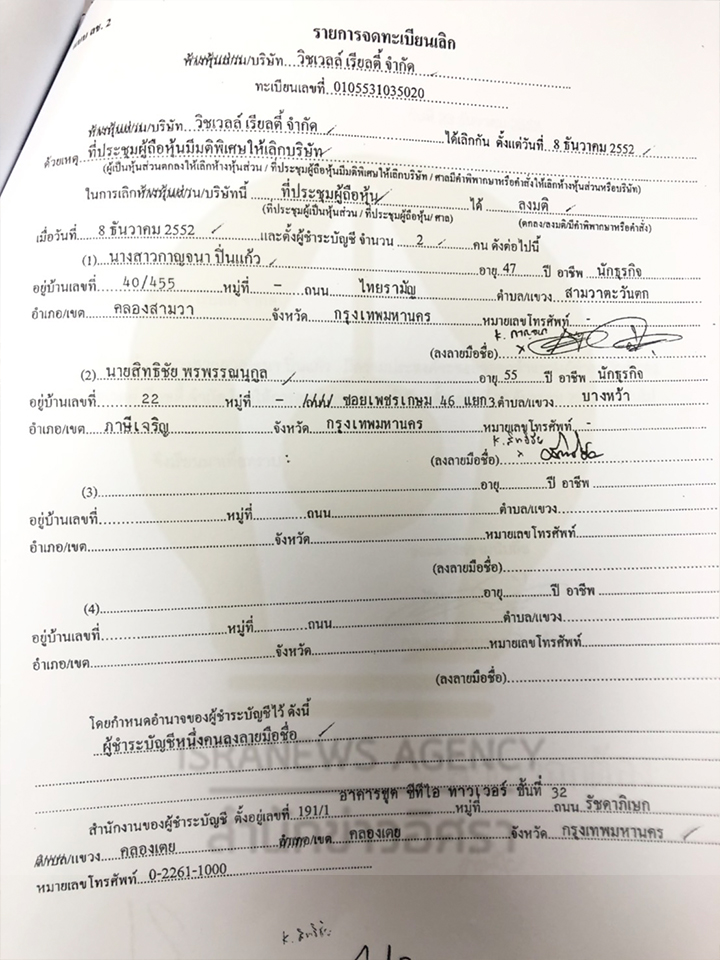 แบบ ลช. 2
รายการจดทะเบียนเลิก
ห้างหุ้นส่วน/บริษัท...วิชเวลล์ เรียลตี้ จำกัด
ทะเบียนเลขที่ 0105531035020
ห้างหุ้นส่วน/บริษัท...วิชเวลล์ เรียลตี้ จำกัด...ได้เลิกกัน ตั้งแต่วันที่ 8 ธันวาคม 2552
ด้วยเหตุ ที่ประชุมผู้ถือหุ้นมีมติพิเศษให้เลิกบริษัท
(ผู้เป็นหุ้นส่วนตกลงให้เลิกห้างหุ้นส่วน / ที่ประชุมผู้ถือหุ้นมีมติพิเศษให้เลิกบริษัท / ศาลมีคำพิพากษาหรือคำสั่งให้เลิกห้างหุ้นส่วนหรือบริษัท)
ในการเลิกห้างหุ้นส่วน/บริษัทนี้ ที่ประชุมผู้ถือหุ้น ได้ ลงมติ
(ที่ประชุมผู้เป็นหุ้นส่วน / ที่ประชุมผู้ถือหุ้น/ ศาล) (ตกลง/ลงมติ/มีคำพิพากษาหรือคำสั่ง)
เมื่อวันที่ 8 ธันวาคม 2552 และตั้งผู้ชำระบัญชี จำนวน 2 คน ดังต่อไปนี้
(1) นางสาวกาญจนา ปิ่นแก้ว อายุ 47 ปี อาชีพ นักธุรกิจ
อยู่บ้านเลขที่ 40/455 หมู่ที่ - ถนน ไทยรามัญ ตำบล/แขวง สามวาตะวันตก
อำเภอ/เขต คลองสามวา จังหวัด กรุงเทพมหานคร หมายเลขโทรศัพท์ -
K. กาญจนา
(ลงลายมือชื่อ) x
(2) นายสิทธิชัย พรพรรณนุกูล อายุ 55 ปี อาชีพ นักธุรกิจ
อยู่บ้านเลขที่ 22 หมู่ที่ - ซอยเพชรเกษม 46 แยก3 ตำบล/แขวง บางหว้า
อำเภอ/เขต ภาษีเจริญ จังหวัด กรุงเทพมหานคร หมายเลขโทรศัพท์ -
K. สิทธิชัย
(ลงลายมือชื่อ) x
(3) อายุ ปี อาชีพ
อยู่บ้านเลขที่ หมู่ที่ ถนน ตำบล/แขวง
อำเภอ/เขต จังหวัด หมายเลขโทรศัพท์
(ลงลายมือชื่อ)
(4) อายุ ปี อาชีพ
อยู่บ้านเลขที่ หมู่ที่ ถนน ตำบล/แขวง
อำเภอ/เขต จังหวัด หมายเลขโทรศัพท์
(ลงลายมือชื่อ)
โดยกำหนดอำนาจของผู้ชำระบัญชีไว้ ดังนี้
ผู้ชำระบัญชีหนึ่งคนลงลายมือชื่อ
ISRANEWS AGENCY
สำนักข่าวอิศรา
อาคารชุด ซีทีไอ ทาวเวอร์ ชั้นที่ 32
สำนักงานของผู้ชำระบัญชี ตั้งอยู่เลขที่ 191/1 หมู่ที่ ถนน รัชดาภิเษก
ตำบล/แขวง คลองเตย อำเภอ/เขต คลองเตย จังหวัด กรุงเทพมหานคร
หมายเลขโทรศัพท์ 0-2261-1000
K. สิทธิชัย